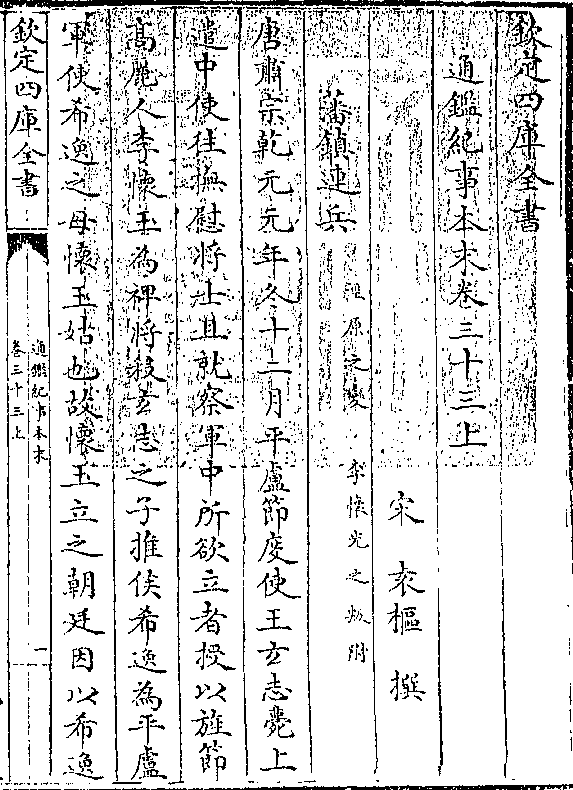 欽定四庫全書
通鑑紀事本末卷三十三上
宋 袁樞 撰
藩鎮連兵 涇原之變 李懷光之叛附
唐肅宗乾元元年冬十二月平盧節度使王玄志薨上
遣中使往撫慰將士且就察軍中所欲立者授以旌節
高麗人李懷玉為裨將殺玄志之子推侯希逸為平盧
軍使希逸之母懷玉姑也故懷玉立之朝廷因以希逸
欽定四庫全書
通鑑紀事本末
卷三十三上
一